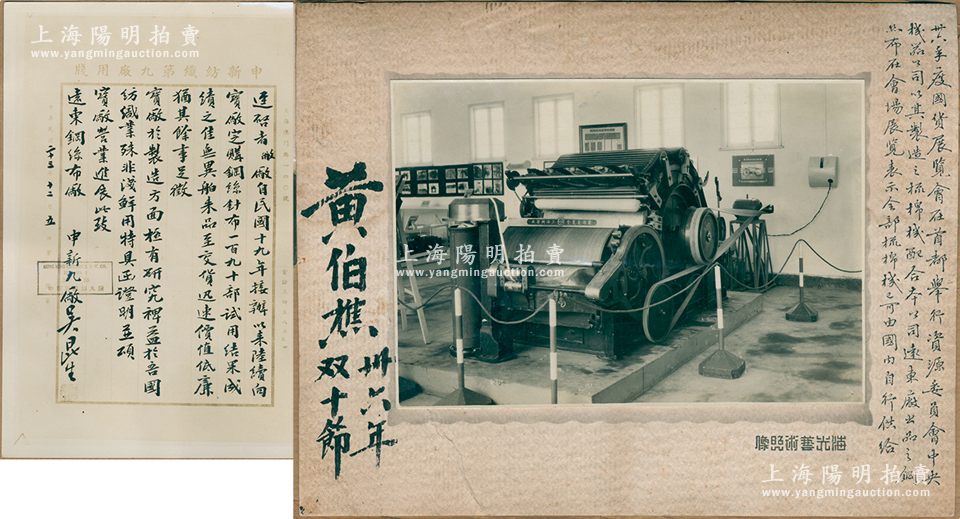 上海陽明拍賣
www.yangmingauction.com
申新紡織第九廠用牋
逕啓者敝廠自民國十九年接辦以来陸續向
寶廠定購鋼絲針布一百九十部試用结果成
績之佳無異舶来品至交貨迅速價值低廉
猶其餘事足徵
寶廠於製造方面極有研究裨益於吾國
紡織業殊非淺鮮用特具函證明並碩
寶廠營業進展此致
遠東鋼絲布廠
申新九廠吳昆生
二十五 十二 五
上海陽明拍賣
www.yangmingauction.com
卅六年度國貨展覽會在首都舉行資源委員會中央
機器公司以其製造之梳棉機配合本公司遠東廠出品之鋼
絲布在會場展覽表示全部梳棉機已可由國內自行供給
黃伯樵
卅六年
双十節
上海陽明拍賣
www.yangmingauction.com
海光藝術照像
上海陽明拍賣
www.yangmingauction.com